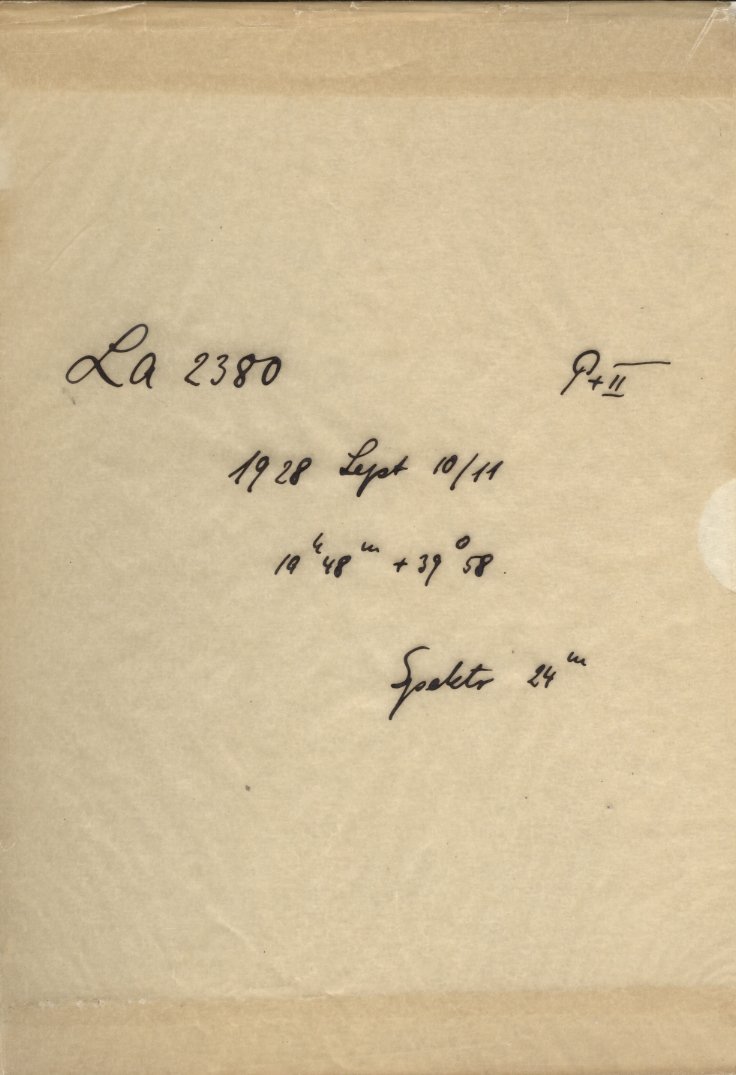 La 2380 P+II
1928 Sept 10/11
19ʰ 48ᵐ + 39⁰ 58
Spektr 24ᵐ